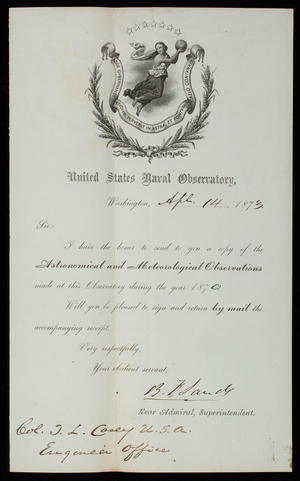 United States Naval Observatory,
Washington, Apl. 14. 1873
Sir:
I have the honor to send to you a copy of the
Astronomical and Meteorological Observations
made at this Observatory during the year 1870
Will you be pleased to sign and return by mail the
accompanying receipt.
Very respectfully,
Your obedient servant,
B. F. Sands
Rear Admiral, Superintendent.
Col. T. L. Casey U.S.A.
Engineer Office